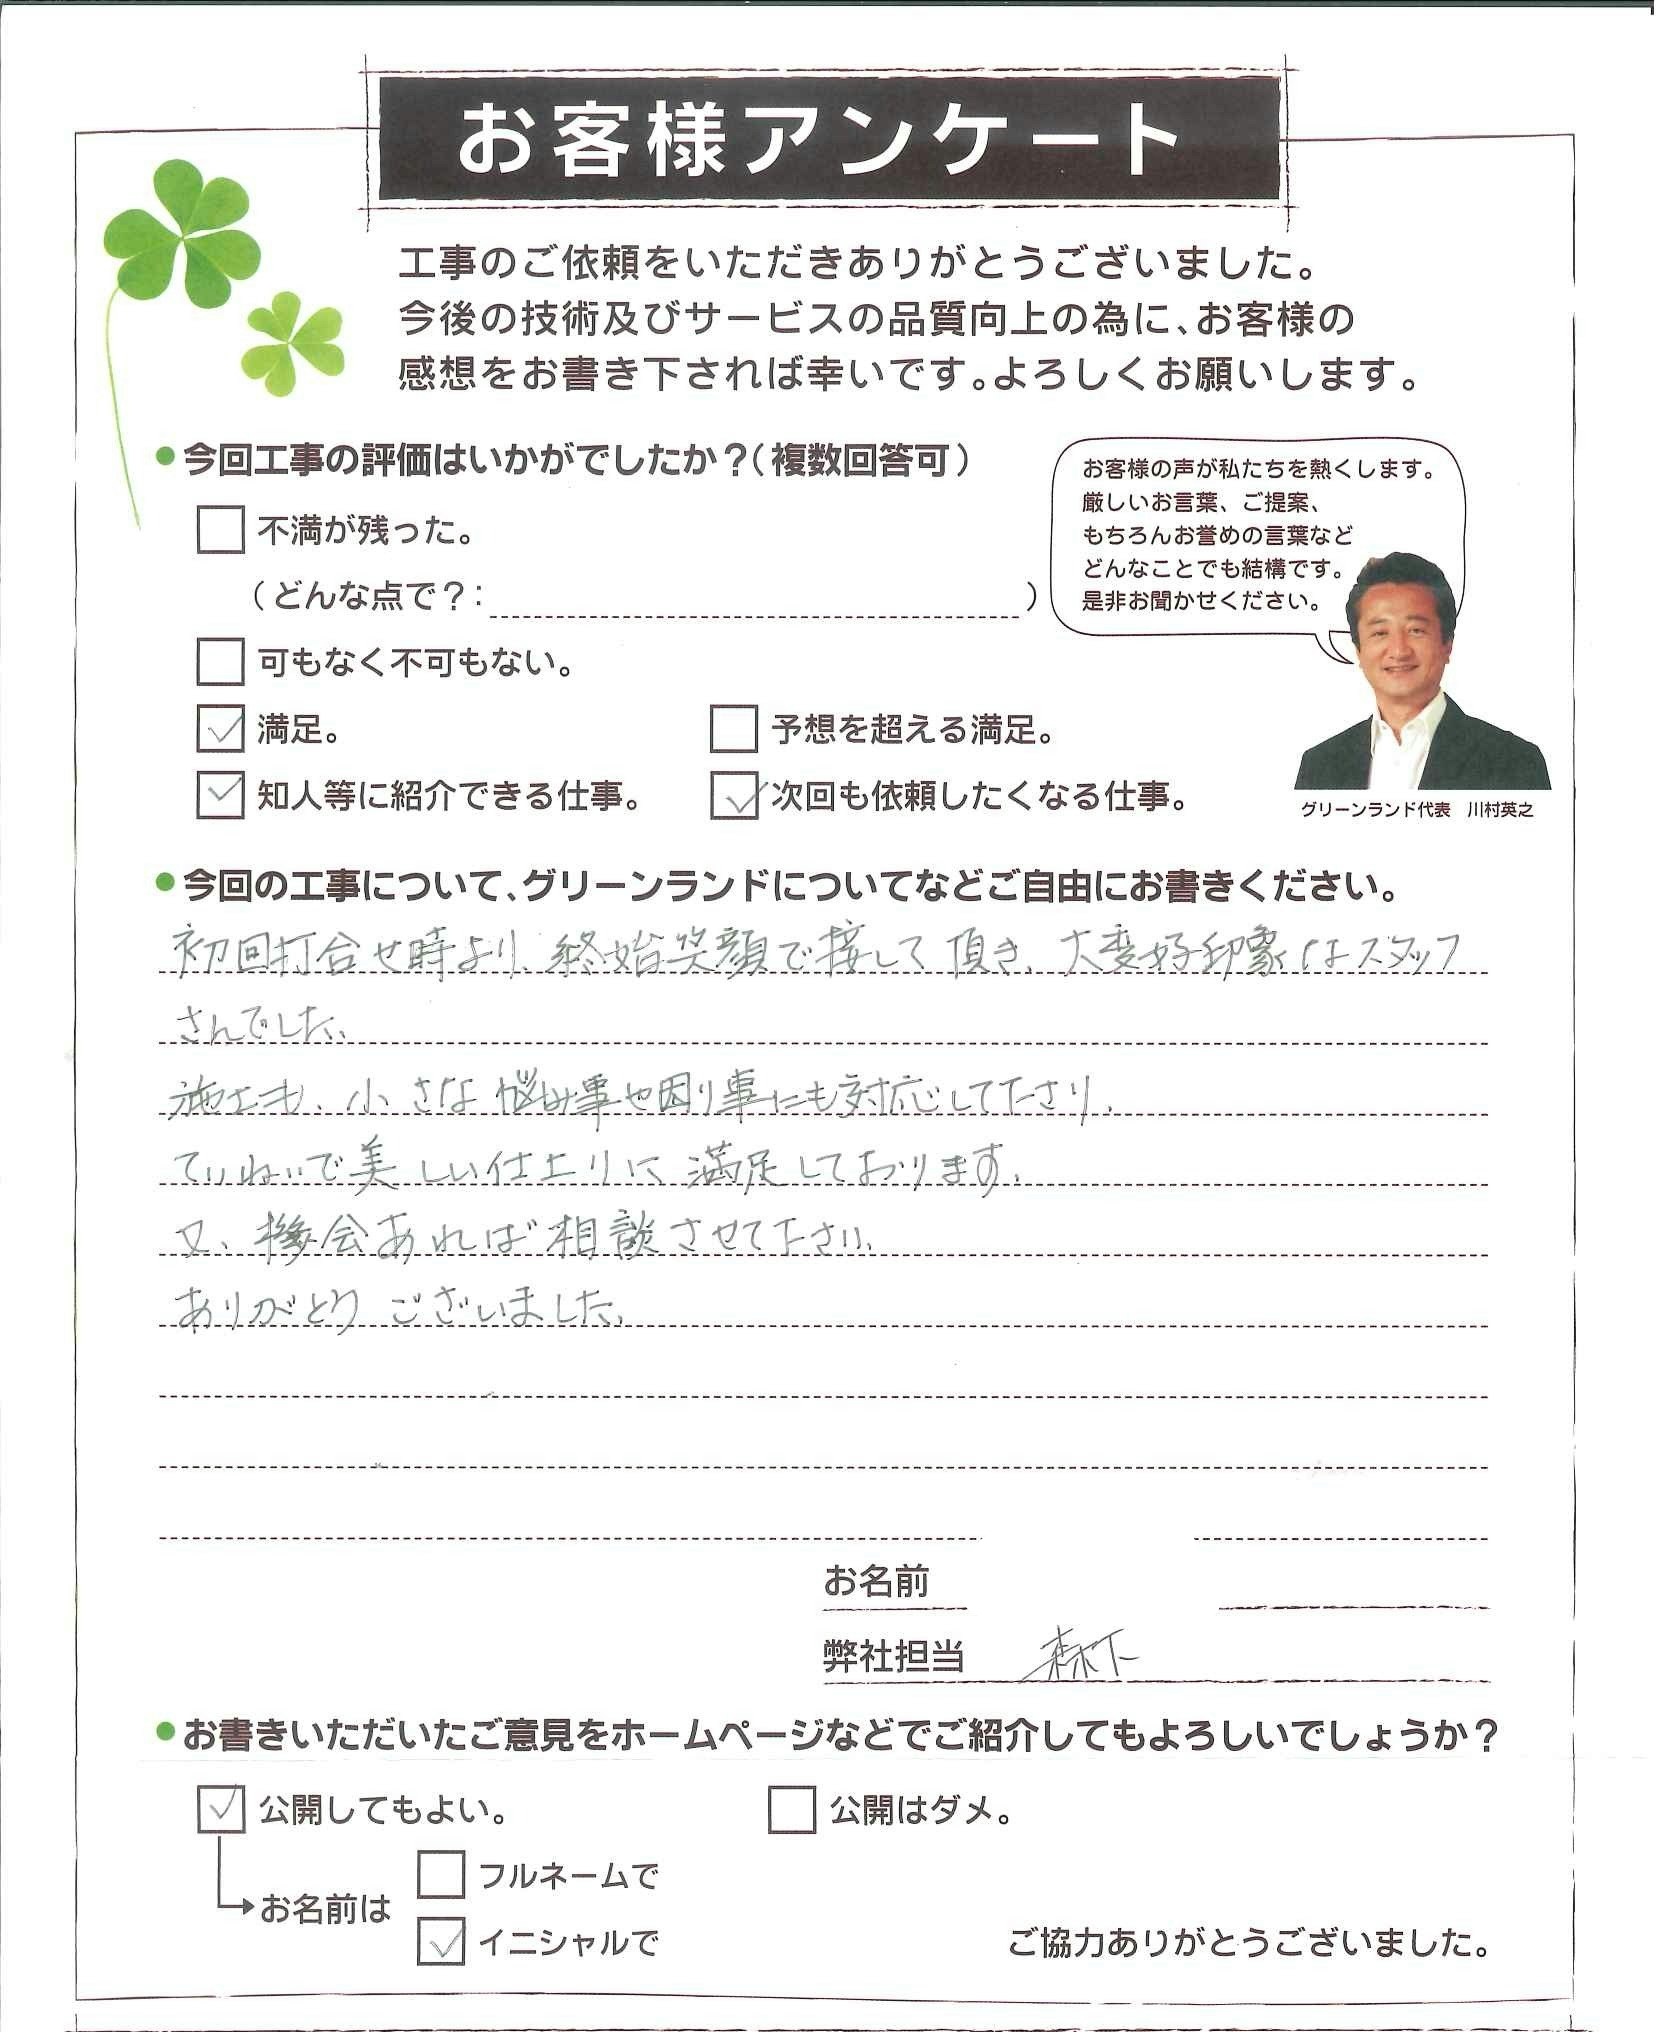 お客様アンケート
工事のご依頼をいただきありがとうございました。
今後の技術及びサービスの品質向上の為に、お客様の
感想をお書き下されば幸いです。よろしくお願いします。
●今回工事の評価はいかがでしたか？（複数回答可）
不満が残った。
（どんな点で？：　）
可もなく不可もない。
満足。
予想を超える満足。
知人等に紹介できる仕事。
次回も依頼したくなる仕事。
お客様の声が私たちを熱くします。
厳しいお言葉、ご提案、
もちろんお誉めの言葉など
どんなことでも結構です。
是非お聞かせください。
グリーンランド代表　川村英之
●今回の工事について、グリーンランドについてなどご自由にお書きください。
初回打合せ時より、終始笑顔で接して頂き、大変好印象なスタッフ
さんでした。
施工も、小さな悩み事や困り事にも対応して下さり、
ていねいで美しい仕上りに満足しております。
又、機会あれば相談させて下さい。
ありがとうございました。
お名前
弊社担当　森下
●お書きいただいたご意見をホームページなどでご紹介してもよろしいでしょうか？
公開してもよい。
公開はダメ。
お名前は
フルネームで
イニシャルで
ご協力ありがとうございました。